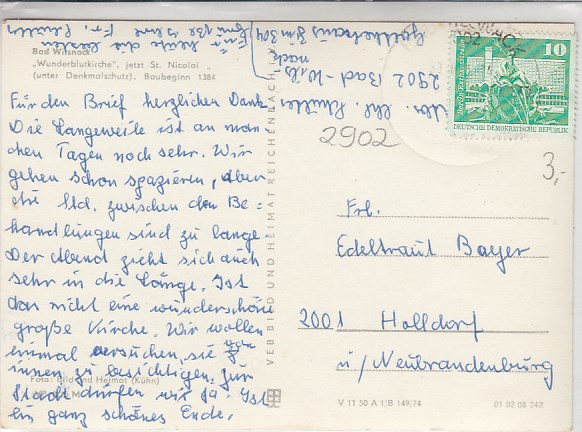 Bad Wilsnack
„Wunderblutkirche“, jetzt St. Nicolai
(unter Denkmalschutz). Baubeginn 1384
Für den Brief herzlichen Dank.
Die Langeweile ist an man-
chen Tagen noch sehr. Wir
gehen schon spazieren, aber
die Std. zwischen den Be-
handlungen sind zu lange.
Der Abend zieht sich auch
sehr in die Länge. Ist
das nicht eine wunderschöne
große Kirche. Wir wollen
einmal versuchen, sie von
innen zu besichtigen. Zur
Stadt dürfen wir ja. Ist
ein ganz schönes Ende.
Foto: Bild und Heimat (Kühn)
VEB BILD UND HEIMAT REICHENBACH
nach
2902 Bad-
2902
10
DEUTSCHE DEMOKRATISCHE REPUBLIK
3,-
Frl.
Edeltraut Bayer
2001 Holldorf
ü/Neubrandenburg
V 11 50 A 1/B 149/74
01 02 08 042